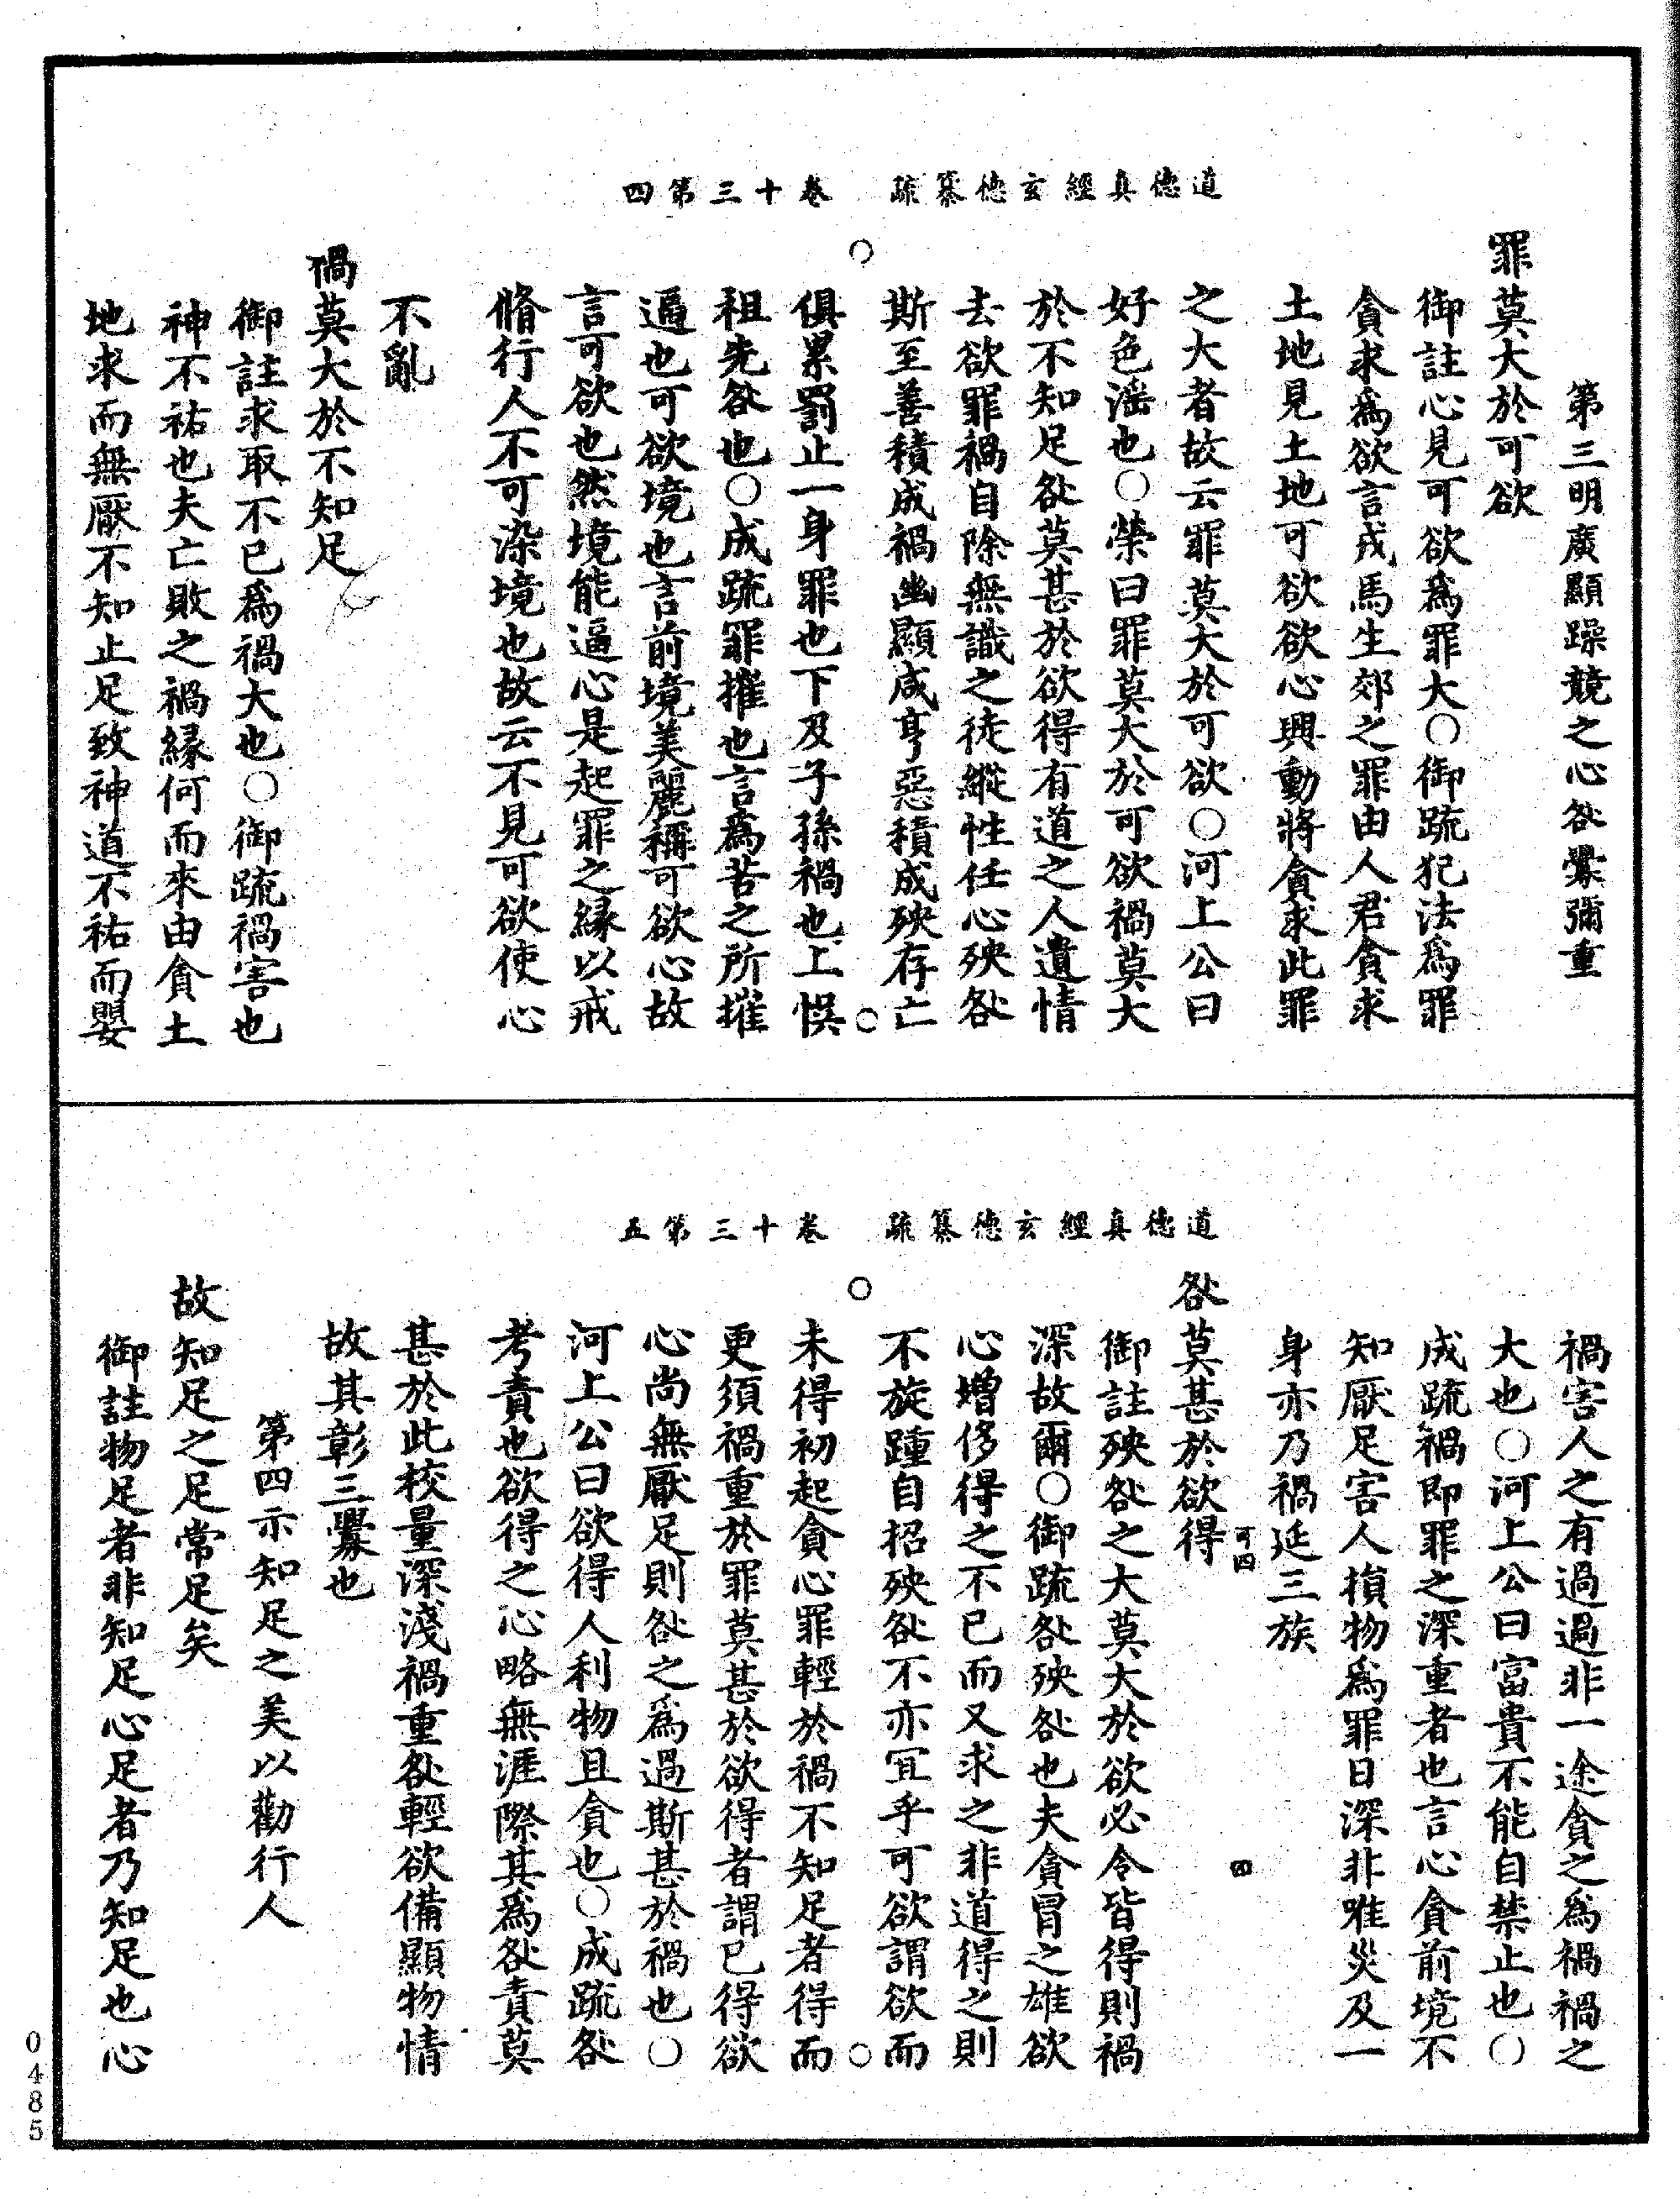 道德真經玄德纂疏　卷十三第四
第三明廣顯躁競之心咎舋彌重
罪莫大於可欲
御註心見可欲爲罪大〇御疏犯法爲罪
貪求爲欲言戎馬生郊之罪由人君貪求
土地見土地可欲欲心興動將貪求此罪
之大者故云罪莫大於可欲〇河上公曰
好色滛也〇榮曰罪莫大於可欲禍莫大
於不知足咎莫甚於欲得有道之人遺情
去欲罪禍自除無識之徒縱性任心殃咎
斯至善積成禍幽顯咸亨惡積成殃存亡
俱累罰止一身罪也下及子孫禍也上悞
祖先咎也〇成疏罪摧也言爲苦之所摧
逼也可欲境也言前境美麗稱可欲心故
言可欲也然境能逼心是起罪之緣以戒
脩行人不可染境也故云不見可欲使心
不亂
禍莫大於不知足
御註求取不已爲禍大也〇御疏禍害也
神不祐也夫亡敗之禍緣何而來由貪土
地求而無厭不知止足致神道不祐而嬰
道德真經玄德纂疏　卷十三第五
禍害人之有過過非一途貪之爲禍禍之
大也〇河上公曰富貴不能自禁止也〇
成疏禍即罪之深重者也言心貪前境不
知厭足害人損物爲罪日深非唯災及一
身亦乃禍延三族
咎莫甚於欲得
可四
四
御註殃咎之大莫大於欲必令皆得則禍
深故爾〇御疏咎殃咎也夫貪冒之雄欲
心增侈得之不已而又求之非道得之則
不旋踵自招殃咎不亦宜乎可欲謂欲而
未得初起貪心罪輕於禍不知足者得而
更須禍重於罪莫甚於欲得者謂已得欲
心尚無厭足則咎之爲過斯甚於禍也〇
河上公曰欲得人利物且貪也〇成疏咎
考責也欲得之心略無涯際其爲咎責莫
甚於此校量深淺禍重咎輕欲備顯物情
故其彰三舋也
第四示知足之美以勸行人
故知足之足常足矣
御註物足者非知足心足者乃知足也心
0485